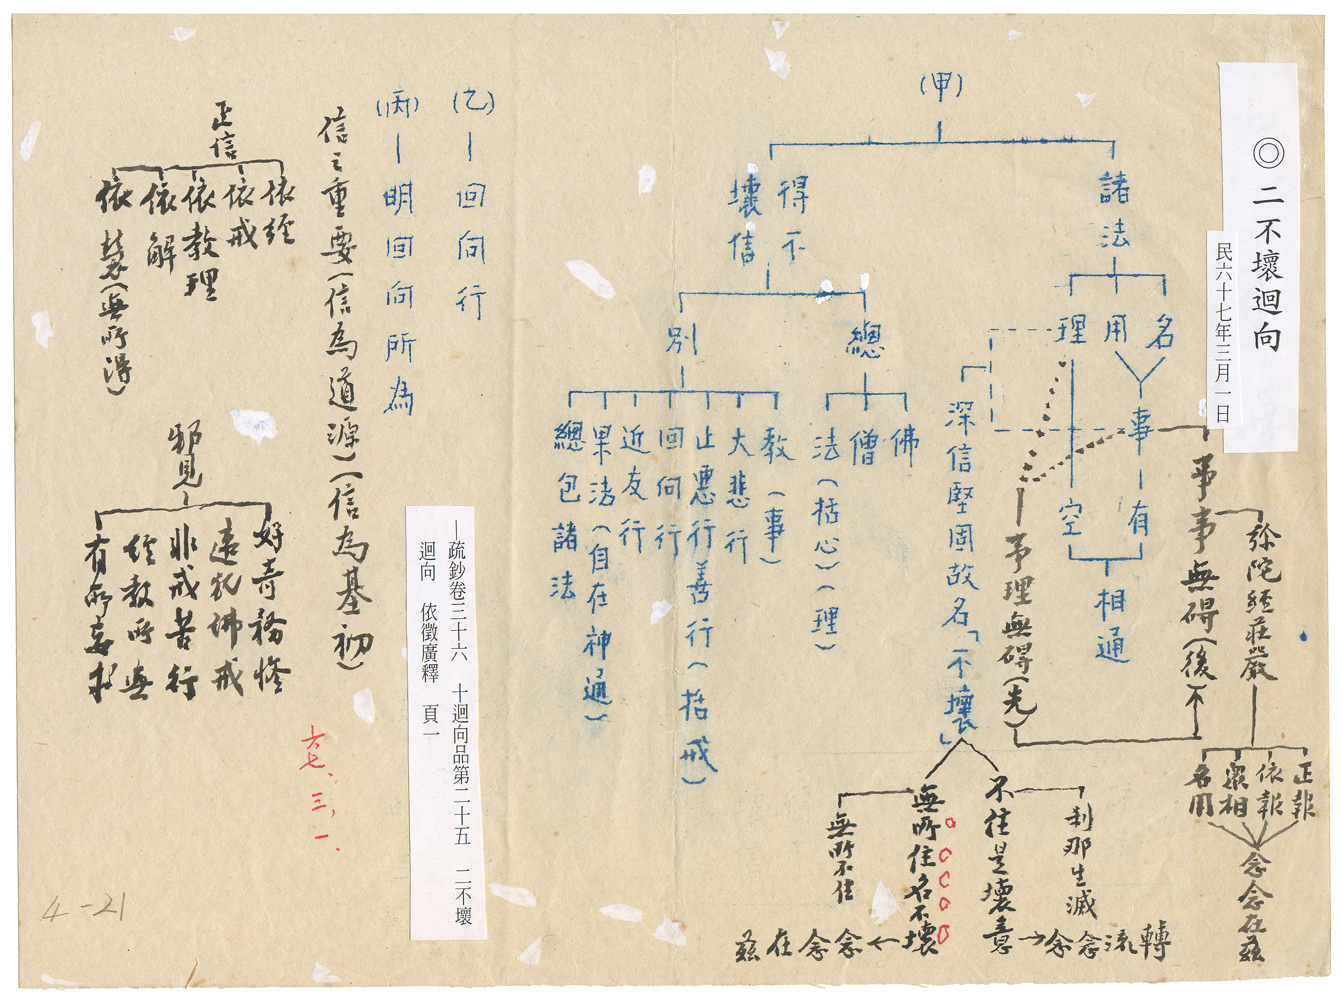 ◎二不壞迴向
民六十七年三月一日
(甲)
諸法
名
用
理
事
有
空
相通
事事無碍(後)
事理無碍(先)
彌陀經莊嚴
正報
依報
眾相
名用
念念在茲
得不
壞信
總
佛
僧
法(括心)(理)
別
教(事)
大悲行
止惡行善行(括戒)
回向行
近友行
果法(自在神通)
總包諸法
深信堅固故名「不壞」
不住是壞意
剎那生滅
→念念流轉
無所住名不壞
無所不住
←念念在茲
(乙)—回向行
(丙)—明回向所為
信之重要(信為道源)(信為基初)
正信
依經
依戒
依教理
依解
依慧(無所得)
邪見
好奇務怪
違犯佛戒
非戒苦行
經教所無
有所妄求
六七、三、一.
—疏鈔卷三十六 十迴向品第二十五 二不壞
迴向 依徵廣釋 頁一
4-21